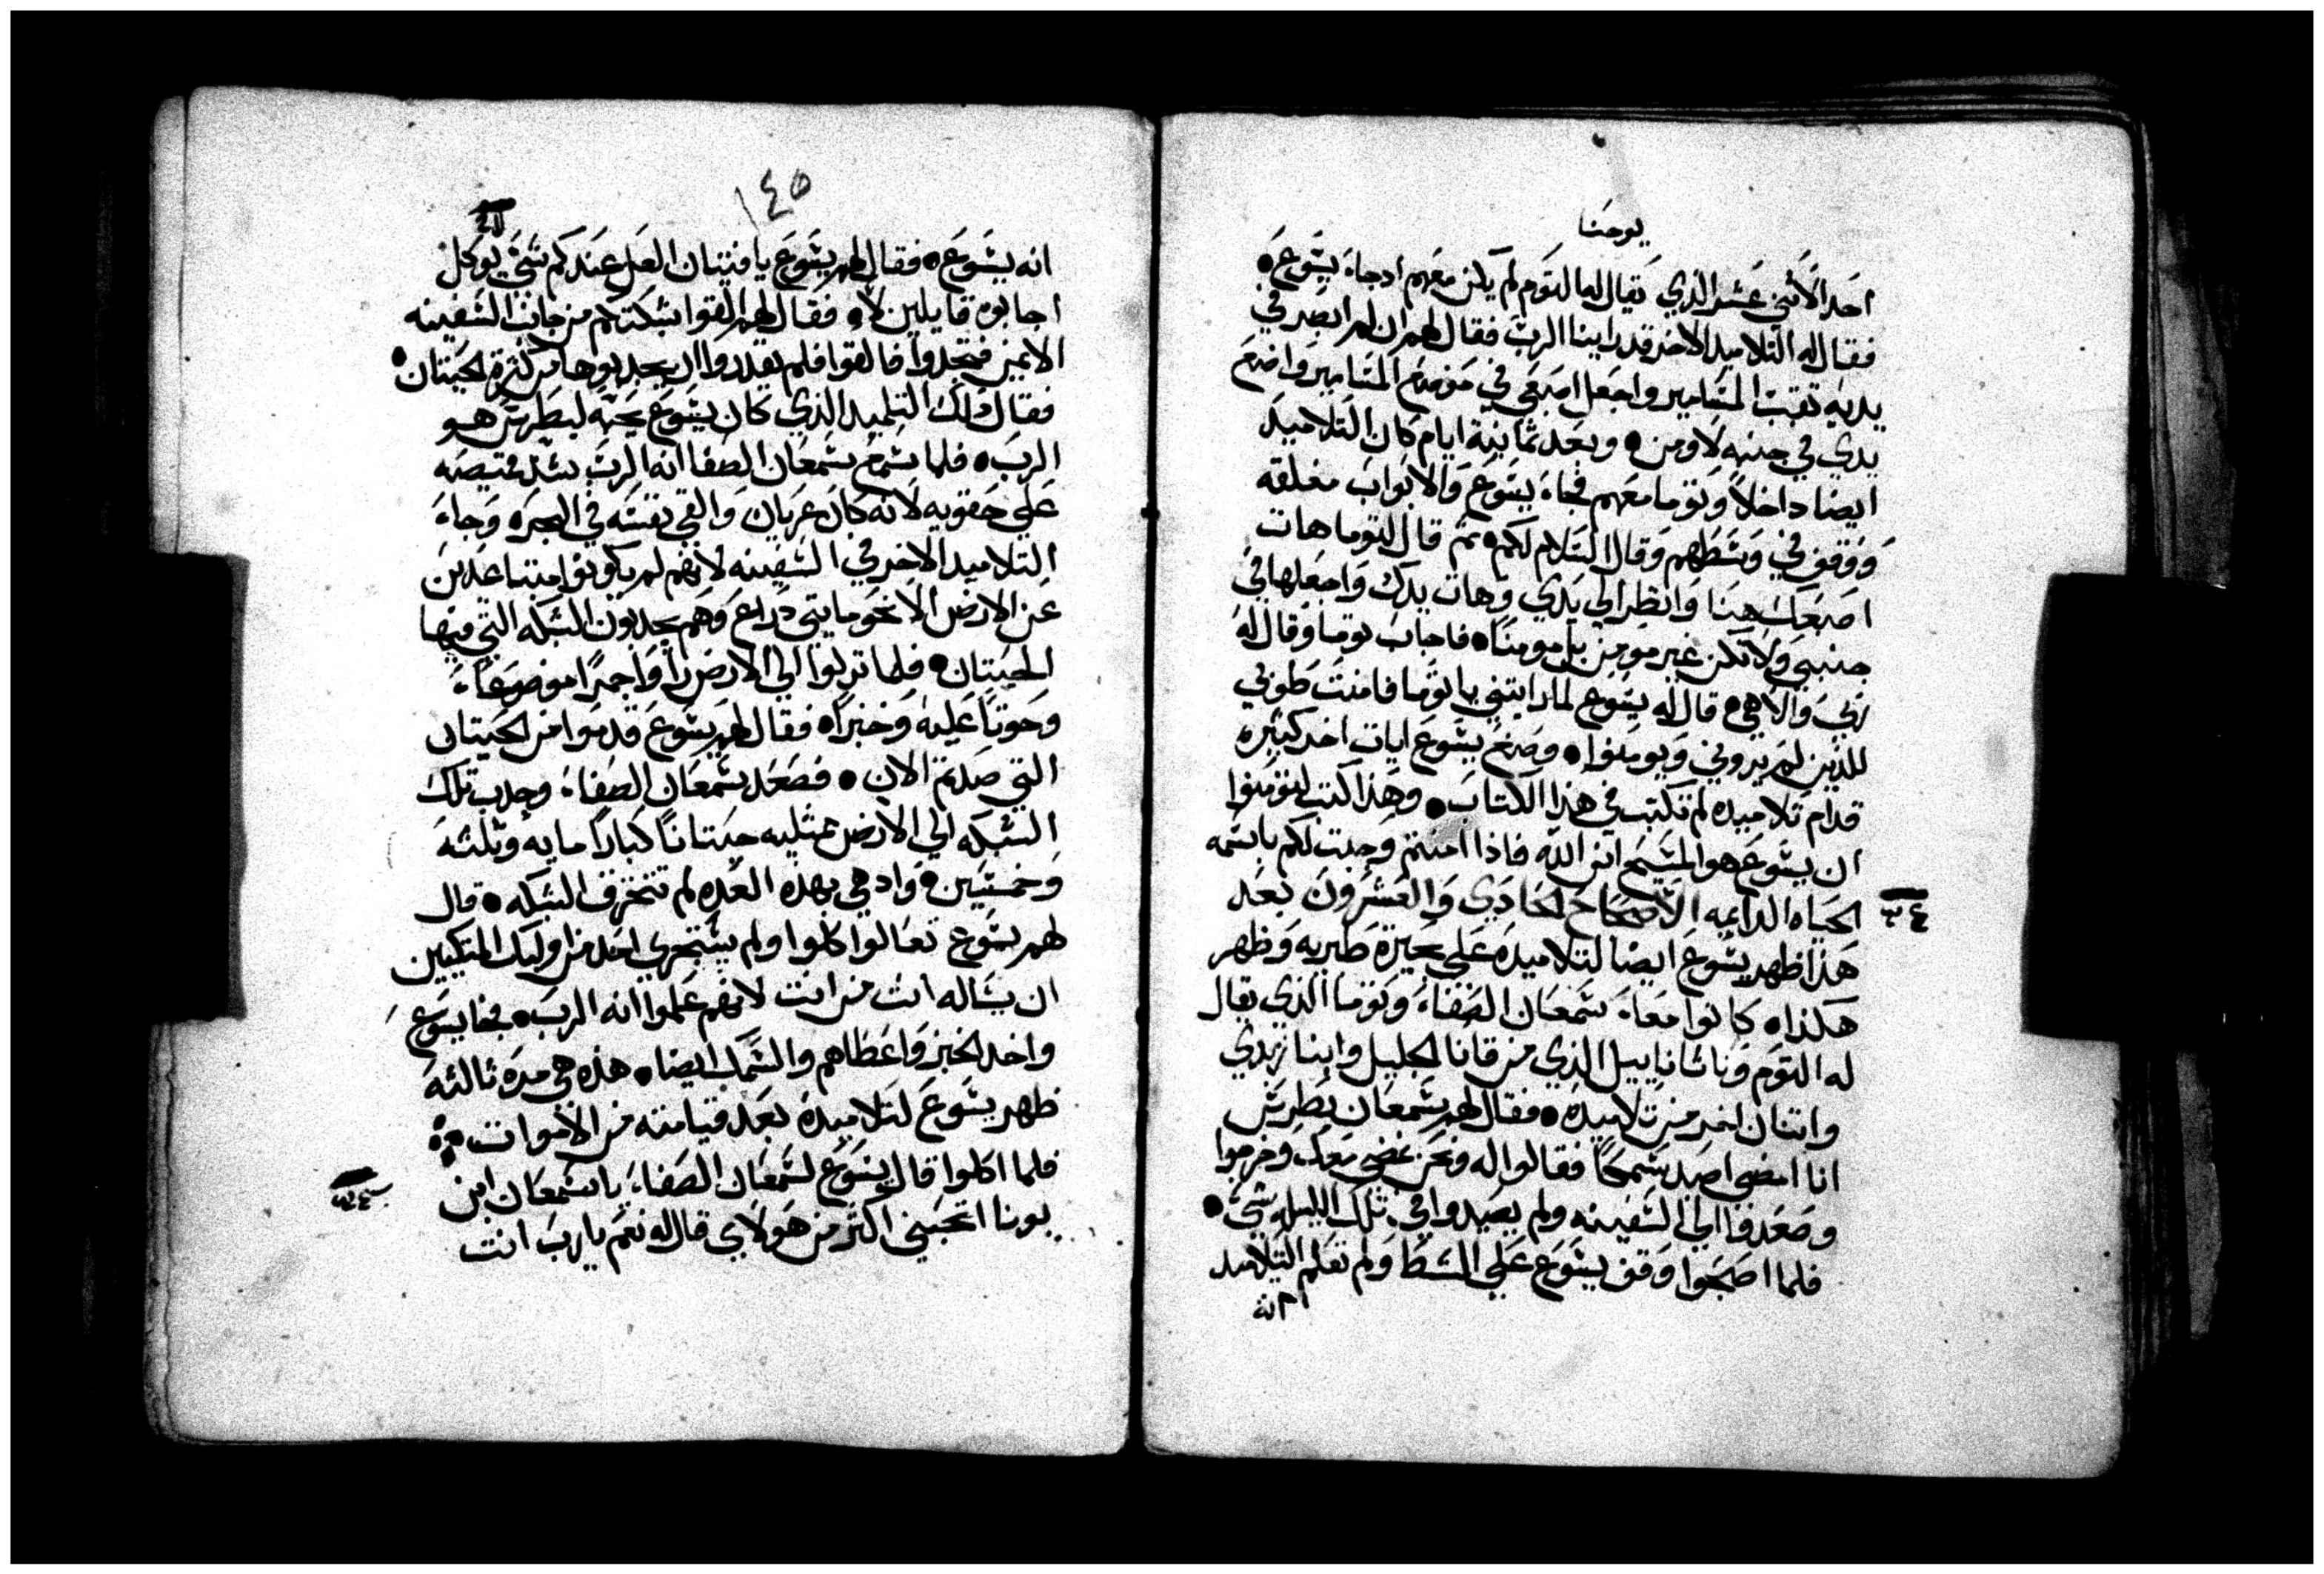 يوحنا
احد الاثني عشر الذي يقال له التوم لم يكن معهم ادجاء يشوع •
فقال له التلاميد الاخر قد راينا الرب فقال لهم ان لم ابصر في
يديه ثقب المسامير واجعل اصبعي في موضع المسامير واضع
يدي في جنبه لا اومن • وبعد ثمانية ايام كان التلاميد
ايضا داخلا وتوما معهم فجاء يشوع والابواب مغلقه
ووقف في وسطهم وقال السلام لكم • ثم قال لتوما هات
اصبعك هنا وانظر الي يدي وهات يدك واجعلها في
جنبي ولا تكن غير مومن بل مومنا • فاجاب توما وقال له
ربي والاهي • قال له يشوع لما رايتني يا توما فامنت طوبي
للذين لم يروني ويومنوا • وصنع يشوع ايات اخر كثيره
قدام تلاميده لم تكتب في هذا الكتاب • وهذا كتب لتومنوا
ان يشوع هو المسيح ابن الله فاذا امنتم وجبت لكم باسمه
الحياه الدايمه الاصحاح الحادي والعشرون بعد
هذا ظهر يشوع ايضا لتلاميده علي بحيرة طبريه وظهر
هكذا • كانوا معاء شمعان الصفاء وتوما الذي يقال
له التوم وناثاناييل الذي من قانا الجليل وابنا زبدي
واتنان اخر من تلاميده • فقال لهم شمعان بطرس
انا امضي اصيد سمكا فقالوا له ونحن نمضي معك وخرجوا
وصعدوا الي السفينه ولم يصيدوا في تلك الليله شي •
فلما اصبحوا وقف يشوع علي الشط ولم تعلم التلاميد
انه
١٤٥
انه يشوع • فقال لهم يشوع يا فتيان العل عندكم شي يوكل
اجابوه قايلين لا • فقال لهم القوا شبكتكم من جانب السفينه
الايمن فتجدوا فالقوا فلم يقدروا ان يجدبوها من كثرة الحيتان •
فقال دلك التلميد الذي كان يشوع يحبه لبطرس هو
الرب • فلما سمع شمعان الصفا انه الرب شد قميصه
علي حقويه لانه كان عريان والقي نفسه في البحر • وجاء
التلاميد الاخر في السفينه لانهم لم يكونوا متباعدين
عن الارض الا نحو مايتي دراع وهم يجدبون الشبكه التي فيها
الحيتان • فلما نزلوا الي الارض راوا جمرا موضوعاء
وحوتا عليه وخبزا • فقال لهم يشوع قدموا من الحيتان
التي صدتم الان • فصعد شمعان الصفاء وجدب تلك
الشبكه الي الارض ممتليه حيتانا كبارا مايه وتلثه
وخمسين • واد هي بهذه العده لم تتخرق الشبكه • قال
لهم يشوع تعالوا كلوا ولم يستجري احد من اوليك المتكيين
ان يساله انت من انت لانهم علموا انه الرب • فجا يشوع
واخد الخبز واعطاهم والسمك ايضا • هذه هي مره تالثه
ظهر يشوع لتلاميده بعد قيامته من الاموات
فلما اكلوا قال يشوع لشمعان الصفاء يا شمعان ابن
يونا اتحبني اكثر من هولاي قال له نعم يا رب انت